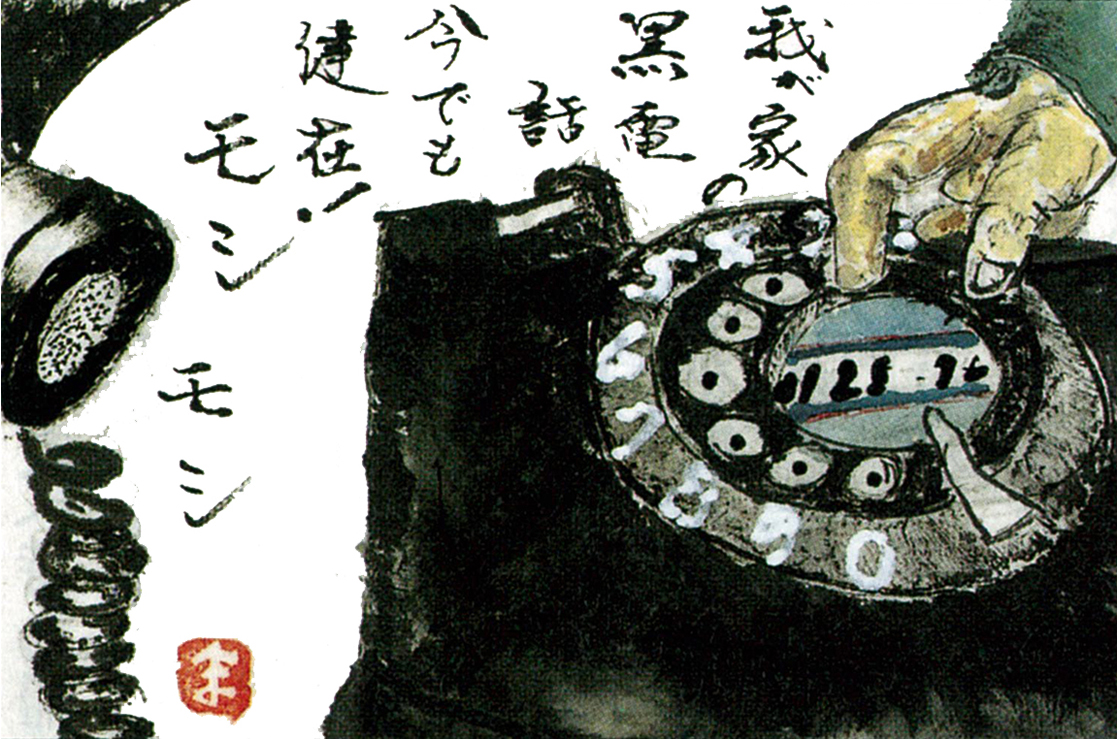 我が家の
黒電
話
今でも
健在!
モシ
モシ
5
6
7
8
9
0